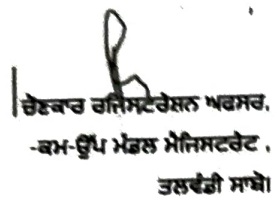 ਚੋਣਕਾਰ ਰਜਿਸਟਰੇਸ਼ਨ ਅਫਸਰ,
-ਕਮ-ਉੱਪ ਮੰਡਲ ਮੈਜਿਸਟਰੇਟ,
ਤਲਵੰਡੀ ਸਾਬੋ।